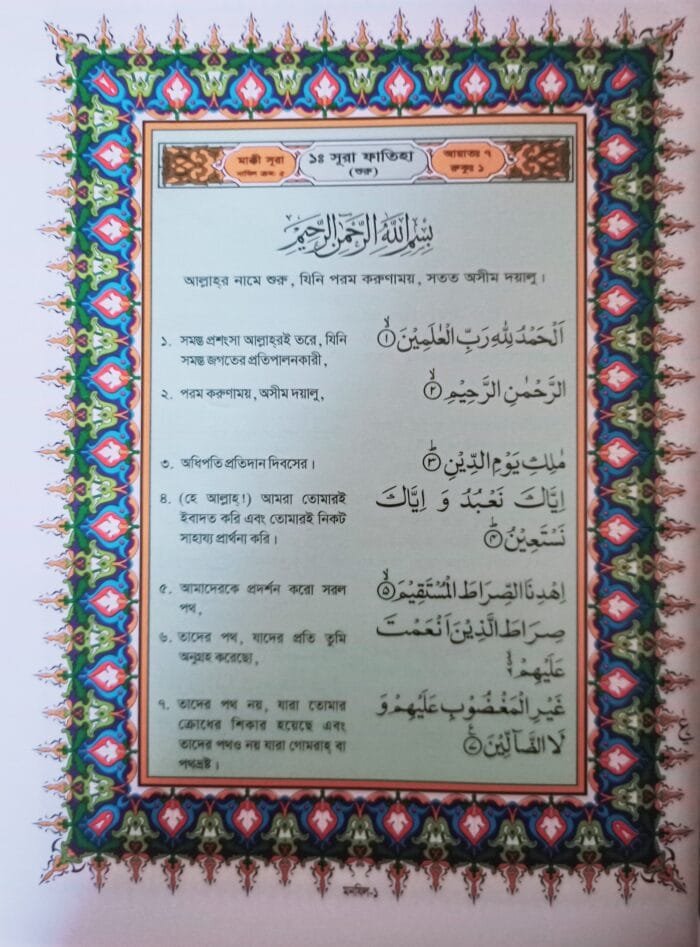 মাক্কী সূরা
নাযিল ক্রম: ৫
১ঃ সূরা ফাতিহা
(শুরু)
আয়াতঃ ৭
রুকুঃ ১
بِسْمِ اللّٰهِ الرَّحْمٰنِ الرَّحِيْمِ
আল্লাহর নামে শুরু, যিনি পরম করুণাময়, সতত অসীম দয়ালু।
১। সমস্ত প্রশংসা আল্লাহরই তরে, যিনি
সমস্ত জগতের প্রতিপালনকারী,
اَلْحَمْدُ لِلّٰهِ رَبِّ الْعٰلَمِيْنَۙ ۝١
২। পরম করুণাময়, অসীম দয়ালু,
الرَّحْمٰنِ الرَّحِيْمِۙ ۝٢
৩। অধিপতি প্রতিদান দিবসের।
مٰلِكِ يَوْمِ الدِّيْنِؕ ۝٣
৪। (হে আল্লাহ!) আমরা তোমারই
ইবাদত করি এবং তোমারই নিকট
সাহায্য প্রার্থনা করি।
اِيَّاكَ نَعْبُدُ وَ اِيَّاكَ
نَسْتَعِيْنُؕ ۝٤
৫। আমাদেরকে প্রদর্শন করো সরল
পথ,
اِهْدِنَا الصِّرَاطَ الْمُسْتَقِيْمَۙ ۝٥
৬। তাদের পথ, যাদের প্রতি তুমি
অনুগ্রহ করেছো,
صِرَاطَ الَّذِيْنَ اَنْعَمْتَ
عَلَيْهِمْ
৭। তাদের পথ নয়, যারা তোমার
ক্রোধের শিকার হয়েছে এবং
তাদের পথও নয় যারা গোমরাহ বা
পথভ্রষ্ট।
غَيْرِ الْمَغْضُوْبِ عَلَيْهِمْ وَ
لَا الضَّآلِّيْنَ ۝٧
মনযিল-১